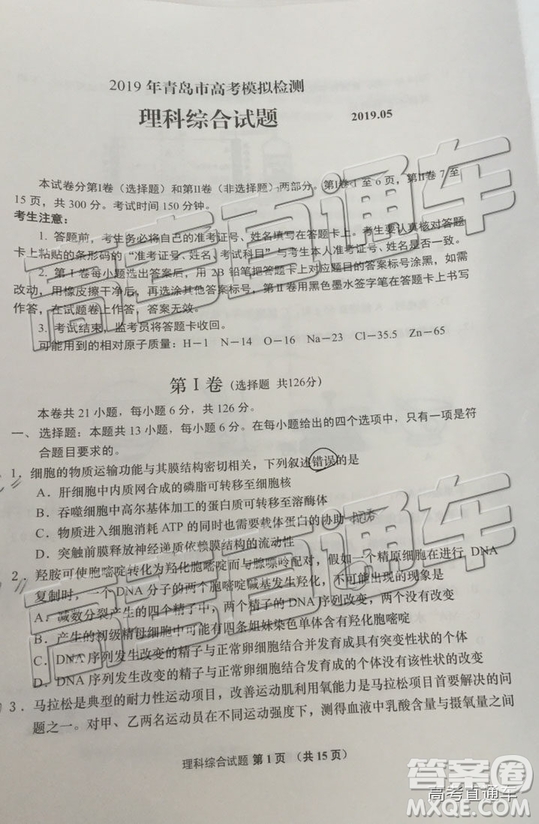 2019 年青岛市高考模拟检测
理科综合试题
2019.05
本试卷分第Ⅰ卷（选择题）和第Ⅱ卷（非选择题）两部分。第Ⅰ卷 1 至 6 页，第Ⅱ卷 7 至
15 页，共 300 分。考试时间 150 分钟。
考生注意：
1. 答题前，考生务必将自己的准考证号、姓名填写在答题卡上。考生要认真核对答题
卡上粘贴的条形码的“准考证号、姓名、考试科目”与考生本人准考证号、姓名是否一致。
2. 第Ⅰ卷每小题选出答案后，用 2B 铅笔把答题卡上对应题目的答案标号涂黑，如需
改动，用橡皮擦干净后，再选涂其他答案标号。第Ⅱ卷用黑色墨水签字笔在答题卡上书写
作答，在试题卷上作答，答案无效。
3. 考试结束，监考员将答题卡收回。
可能用到的相对原子质量：H-1 N-14 O-16 Na-23 Cl-35.5 Zn-65
第Ⅰ卷（选择题 共126分）
本卷共 21 小题，每小题 6 分，共 126 分。
一、选择题：本题共 13 小题，每小题 6 分。在每小题给出的四个选项中，只有一项是符
合题目要求的。
1．细胞的物质运输功能与其膜结构密切相关，下列叙述错误的是
A．肝细胞中内质网合成的磷脂可转移至细胞核
B．吞噬细胞中高尔基体加工的蛋白质可转移至溶酶体
C．物质进入细胞消耗 ATP 的同时也需要载体蛋白的协助
D．突触前膜释放神经递质依赖膜的流动性
2．羟胺可使胞嘧啶转化为羟化胞嘧啶而与腺嘌呤配对，假如一个精原细胞在进行 DNA
复制时，一个 DNA 分子的两个胞嘧啶碱基发生羟化，不可能出现的现象是
A．减数分裂产生的四个精子中，两个精子的 DNA 序列改变，两个没变
B．产生的初级精母细胞中可能有四条姐妹染色单体含有羟化胞嘧啶
C．DNA 序列发生改变的精子与正常卵细胞结合并发育成具有突变性状的个体
D．DNA 序列发生改变的精子与正常卵细胞结合发育成的个体没有该性状的改变
3．马拉松是典型的耐力性运动项目，改善运动肌利用氧能力是马拉松项目首要解决的问
题之一。对甲、乙两名运动员在不同运动强度下，测得血液中乳酸含量与摄氧量之间
理科综合试题 第 1 页 （共 15 页）
高考直通车
高考直通车
答案卷
高考直通车
MXQE.COM